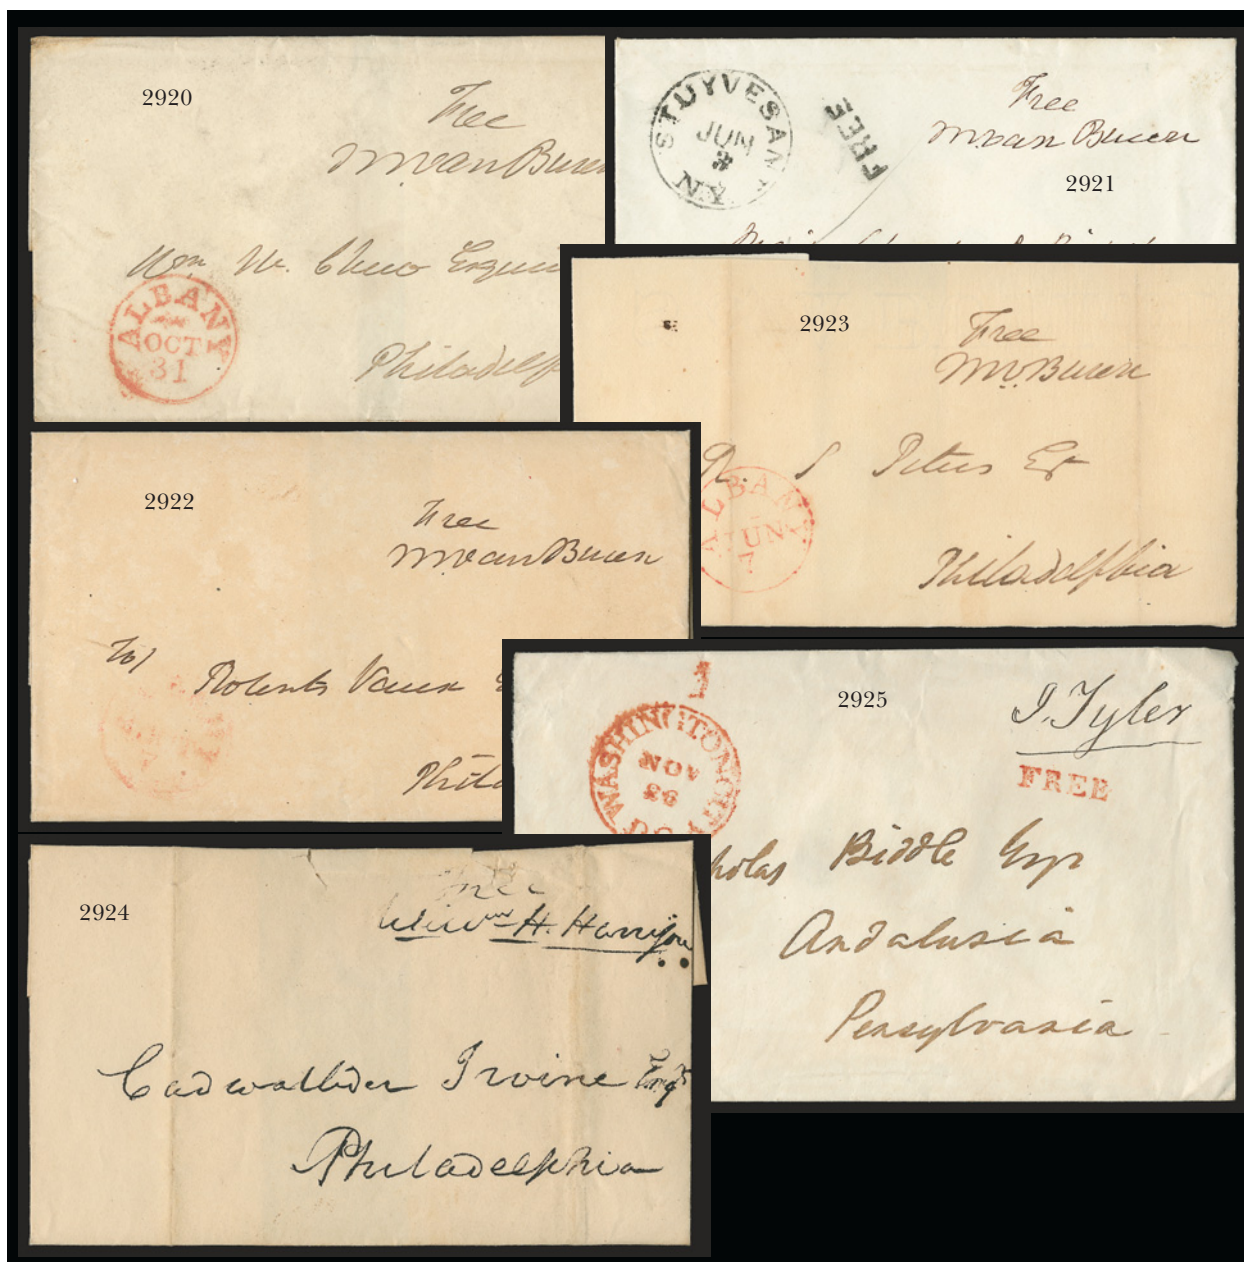 2920
Free
M Van Buren
Wm
Philadelp
ALBANY
OCT
31
STUYVESANT
JUN
3
NY
FREE
Free
M Van Buren
2921
2923
Free
M V Buren
R. S Peters Esq
ALBANY
JUN
7
Philadelphia
2922
Free
M Van Buren
To/
Roberts Vaux
Phila
2925
1
WASHINGTON CITY
NOV
26
J. Tyler
FREE
holas Biddle Esqr
Andalusia
Pensylvania
2924
Free
Willm H. Harrison
Cadwallider Irvine Esqr
Philadelphia